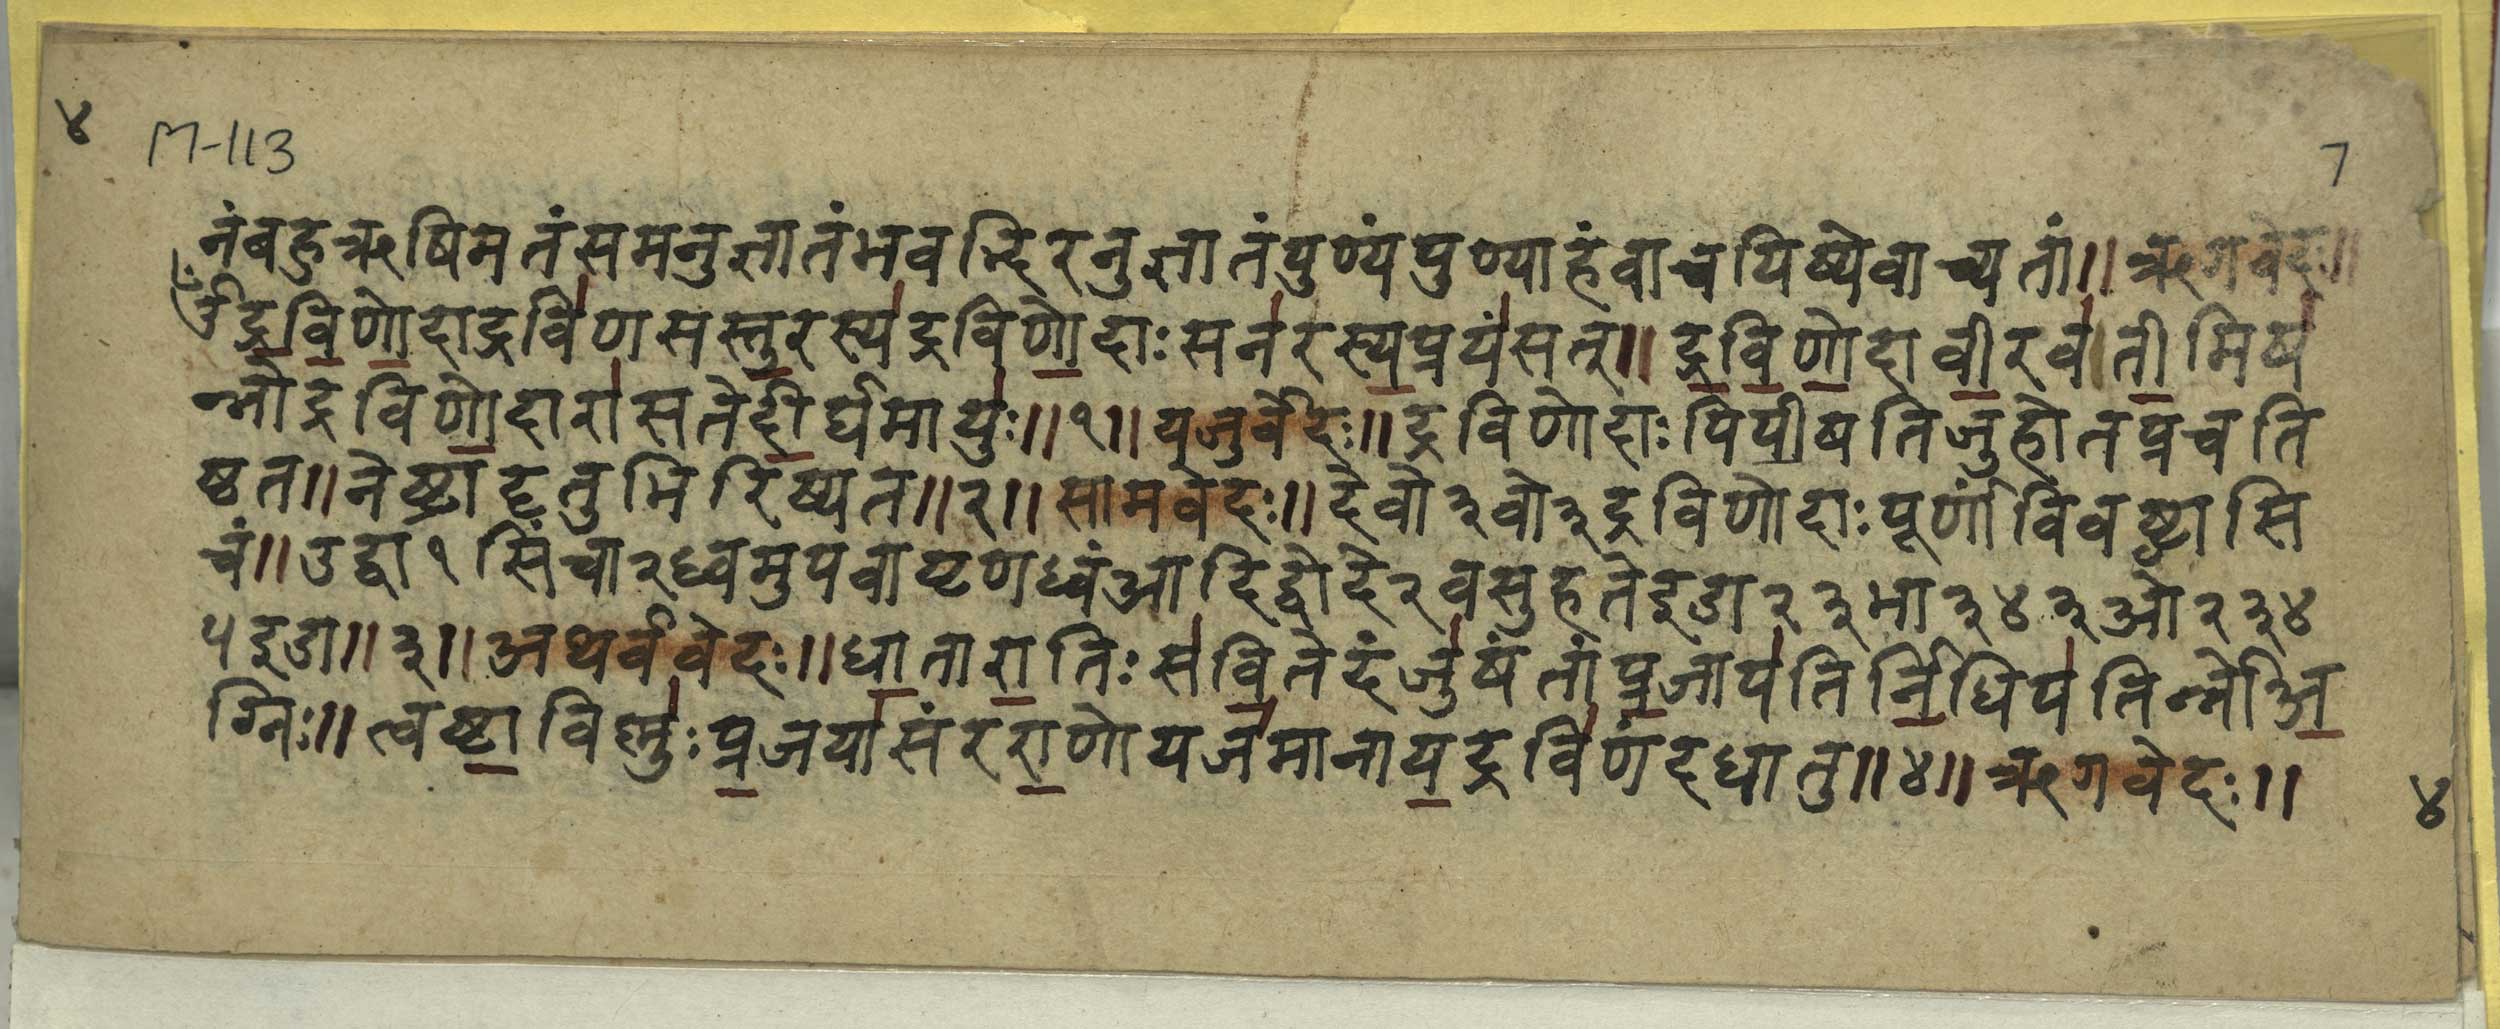 ४
M-113
7
नंबहुऋषिमतंसमनुज्ञातंभवद्भिरनुज्ञातंपुण्यंपुण्याहंवाचयिष्येवाच्यतां॥ ऋगवेदः॥
द्र॒वि॒णो॒दाद्रवि॑णसस्तु॒रस्य॑द्रविणो॒दाःसन॑रस्य॒प्रयं॑सत्॥ द्र॒वि॒णो॒दावी॒रव॑ती॒मिष॑
न्नोद्रविणो॒दारा॑सतेदी॒र्घमायुः॑॥१॥ यजुर्वेदः॥ द्रविणोदाःपिपीषतिजुहोतप्रचति
ष्ठत॥ नेष्ट्रादृतुभिरिष्यत॥२॥ सामवेदः॥ देवो३वो३द्रविणोदाःपूर्णांविवष्ट्वासि
चं॥ उद्वा१सिंचा२ध्वमुपवाष्टणध्वंआदिद्वोदे२वसुहतेइडा२३भा३४३ओ२३४
५इडा॥३॥ अथर्ववेदः॥ धा॒तारा॒तिःस॑वि॒तेदंजु॑षंतांप्र॒जाप॑तिर्नि॒धिप॑तिन्नोअ॒
ग्निः॥ त्वष्टा॒विष्णुः॑प्र॒जया॑संररा॒णोयज॑मानाय॒द्रवि॑णंदधातु॥४॥ ऋगवेदः॥
४